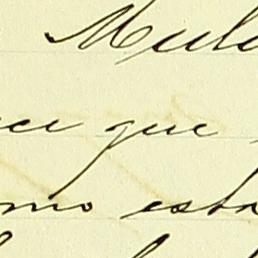 Mula
ce que
mo esta